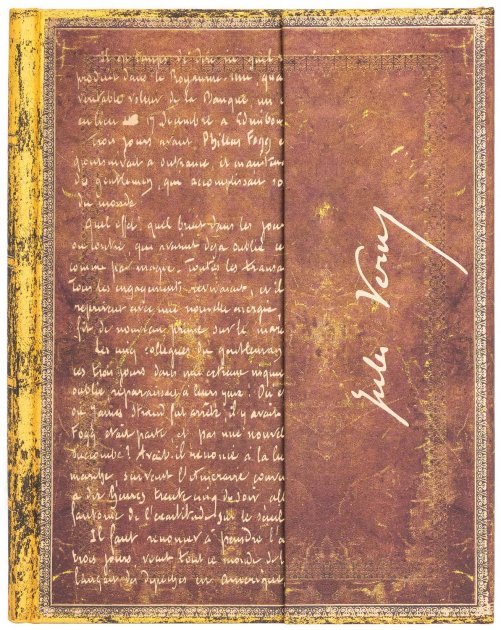 Il est temps de dire ici quel
produit dans le Royaume-Uni qua
véritable voleur de la Banque un c
eu lieu le 17 Décembre à Edimbou
trois jours avant, Phileas Fogg é
poursuivait à outrance, et mainten
des gentlemen, qui accomplissait so
du monde
Quel effet, quel bruit dans les jour
ou contre qui avaient déjà oublié ce
comme par magie. Toutes les transa
tous les engagements revivaient, et il
reprirent avec une nouvelle énergie
fit de nouveau prime sur le marc
Les cinq collègues du gentleman
ces trois jours dans une certaine inquié
oublié reparaissait à leurs yeux! Où é
où James Strand fut arrêté: il y avait
Fogg était parti et pas une nouvel
succombé? Avait-il renoncé à la lu
marche suivant l'itinéraire conve
à dix heures trente cinq du soir all
fantôme de l'exactitude, sur le seuil
Il faut renoncer à peindre l'a
trois jours vécut tout ce monde de l
lança des dépêches en Amérique
Jules Verne